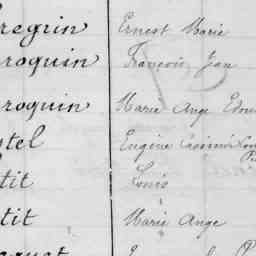 regrin Ernest Marie
roquin François Jean
roquin Marie Ange Edou
tel Eugène Casimir
tit Louis
tit Marie Ange